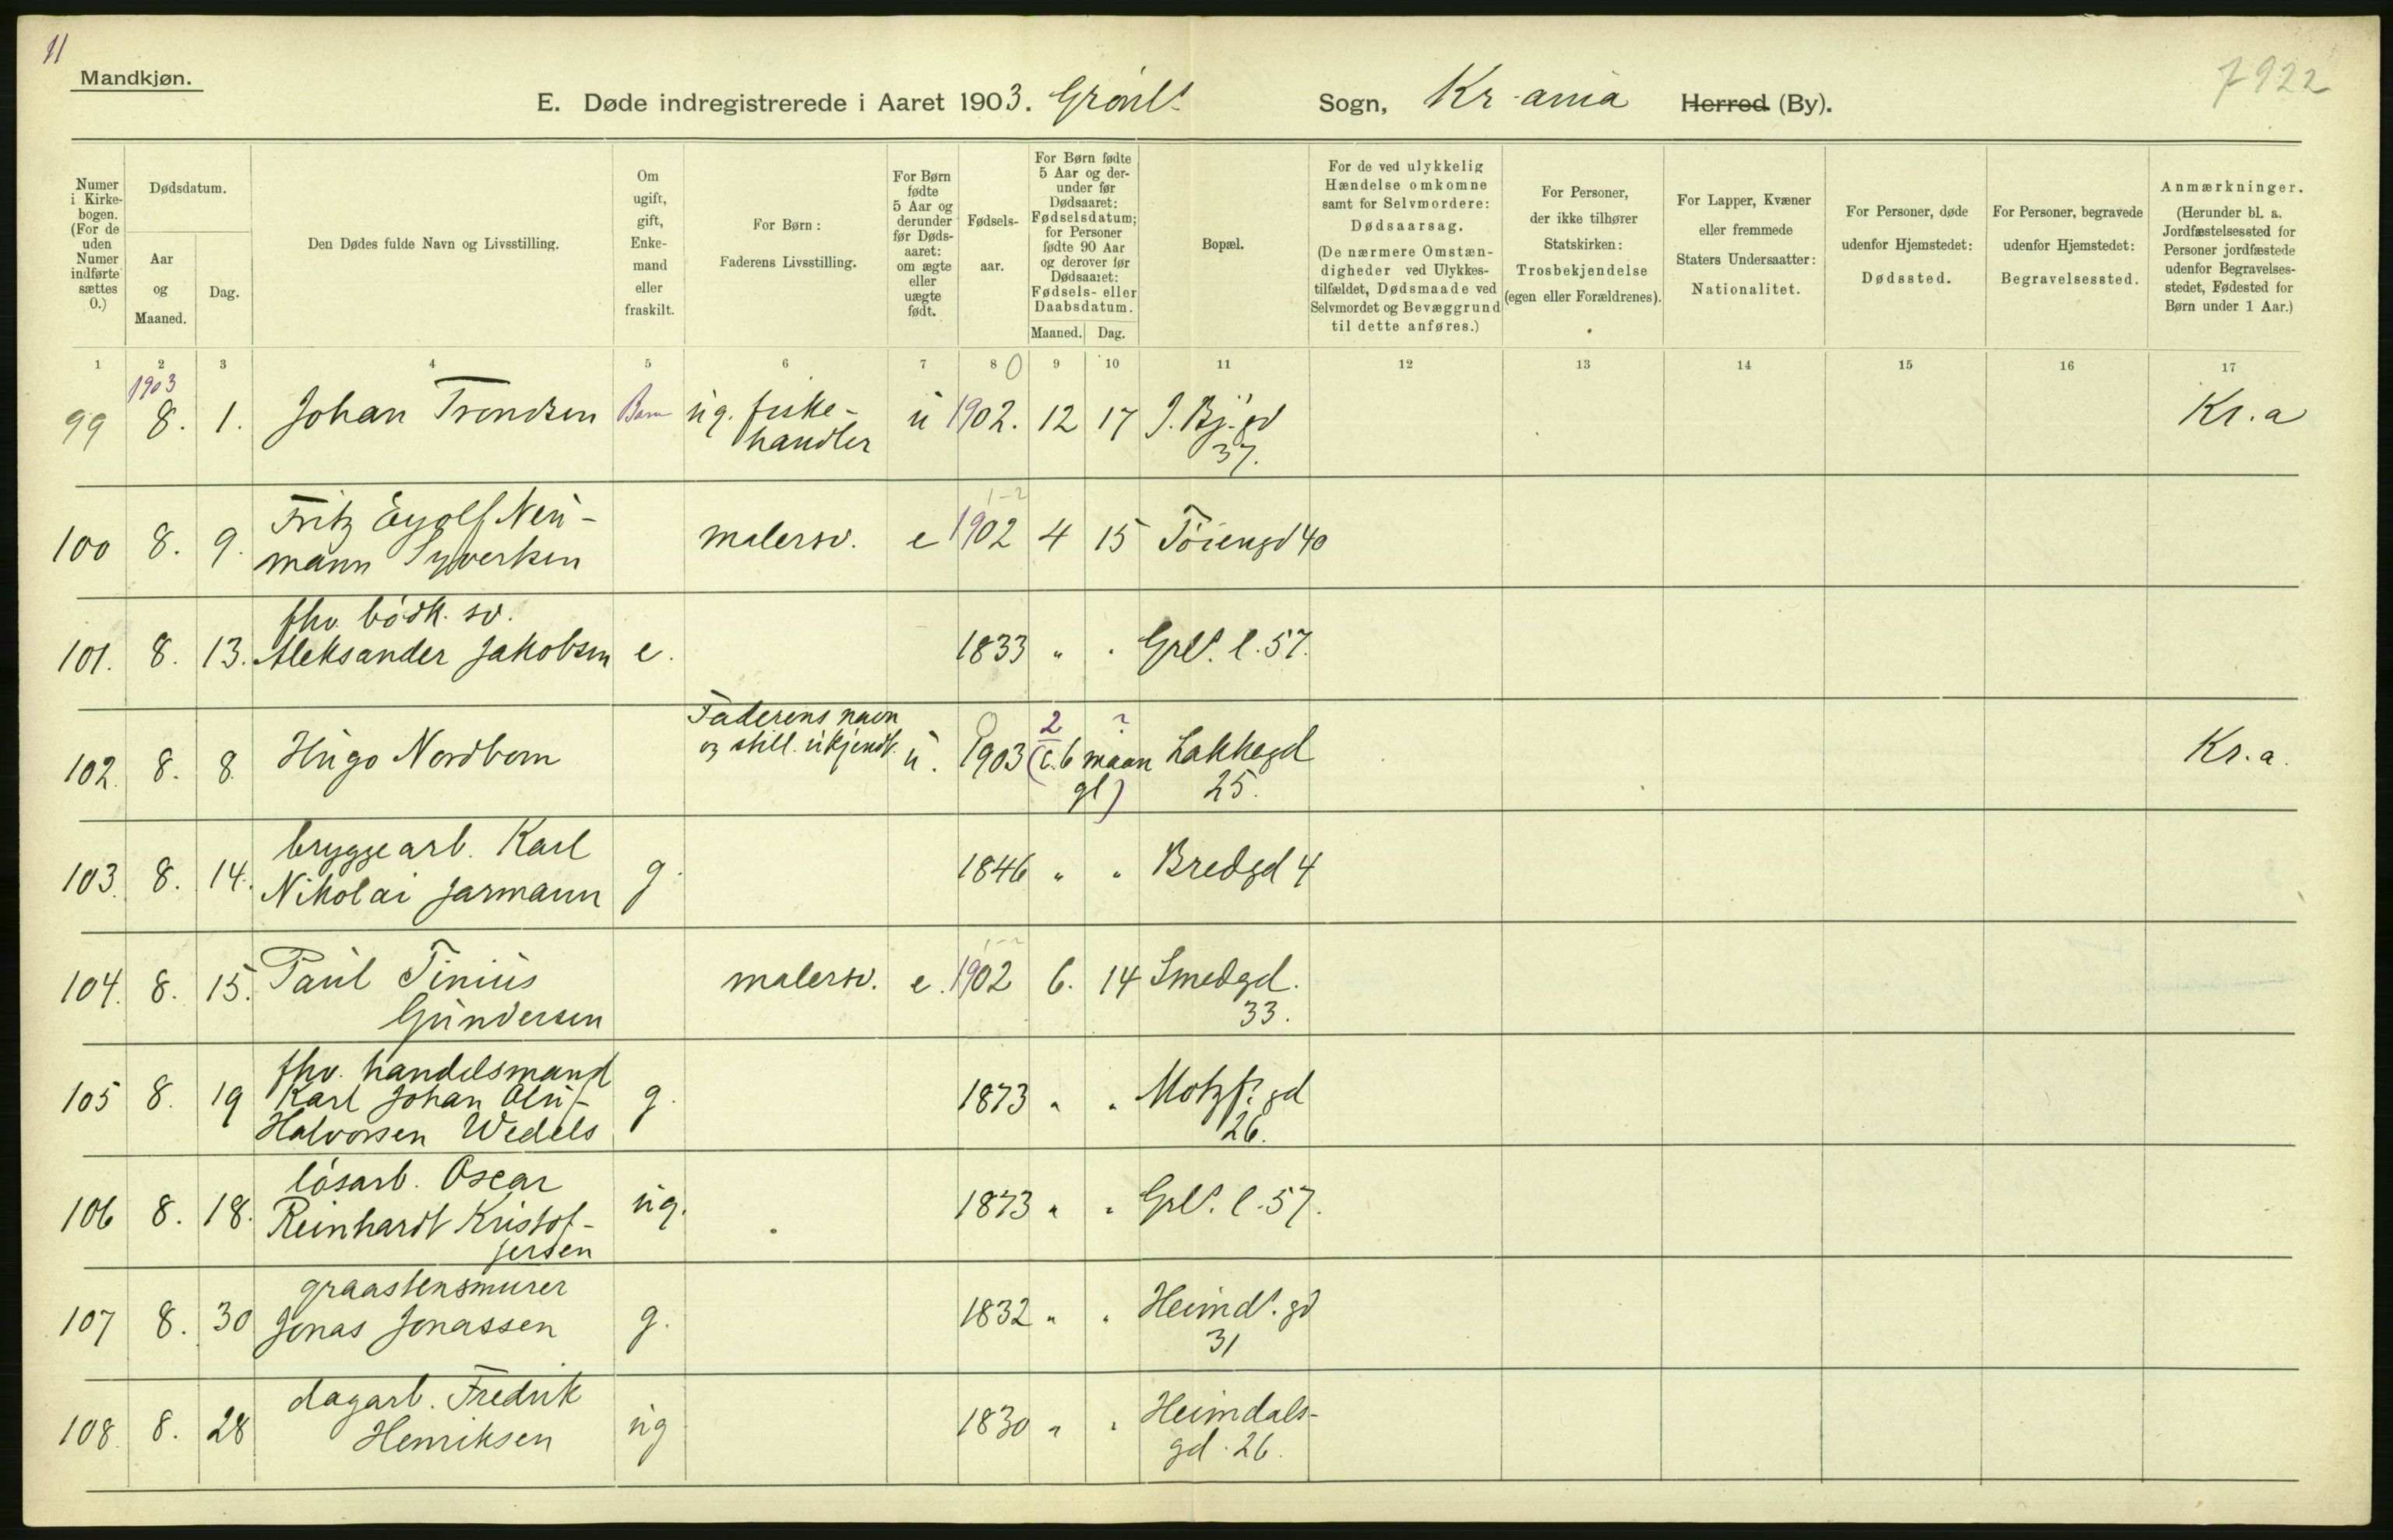 11
Mandkjøn.
7922
E. Døde indregistrerede i Aaret 1903. Grønl. Sogn, Kr-ania Herred (By).
Numer i Kirke-bogen. (For de uden Numer indførte sættes 0.)
Dødsdatum.
Aar og Maaned.
Dag.
Den Dødes fulde Navn og Livsstilling.
Om ugift, gift, Enke-mand eller fraskilt.
For Børn: Faderens Livsstilling.
For Børn fødte 5 Aar og derunder før Døds-aaret: om ægte eller uægte født.
Fødsels-aar.
For Børn fødte 5 Aar og der-under før Dødsaaret: Fødselsdatum; for Personer fødte 90 Aar og derover før Dødsaaret: Fødsels- eller Daabsdatum.
Maaned. Dag.
Bopæl.
For de ved ulykkelig Hændelse omkomne samt for Selvmordere: Dødsaarsag. (De nærmere Omstæn-digheder ved Ulykkes-tilfældet, Dødsmaade ved Selvmordet og Bevæggrund til dette anføres.)
For Personer, der ikke tilhører Statskirken: Trosbekjendelse (egen eller Forældrenes).
For Lapper, Kvæner eller fremmede Staters Undersaatter: Nationalitet.
For Personer, døde udenfor Hjemstedet: Dødssted.
For Personer, begravede udenfor Hjemstedet: Begravelsessted.
Anmærkninger. (Herunder bl. a. Jordfæstelsessted for Personer jordfæstede udenfor Begravelses-stedet, Fødested for Børn under 1 Aar.)
1 2 3 4 5 6 7 8 9 10 11 12 13 14 15 16 17
1903 0
99 8. 1. Johan Trondsen Barn ug. fiske- u 1902. 12 17 J. Bj. gd Kr.a
handler 37.
1-2
Fritz Eyolf Neu-
100 8. 9. mann Syversen malersv. e 1902 4 15 Tøiengd 40
fhv. bødk. sv.
101. 8. 13. Aleksander Jakobsen e. 1833 " " Grl. l. 57.
Faderens navn 0 2 ?
102. 8. 8. Hugo Nordbom og still. ukjendt. u. 1903 (c. 6 maan Lakkegd Kr.a.
gl) 25.
bryggearb. Karl
103. 8. 14. Nikolai Jarmann g. 1846 " " Bredgd 4
1-2
104. 8. 15. Paul Tinius malersv. e. 1902 6. 14 Smedgd.
Gundersen 33.
fhv. handelsmand
105 8. 19 Karl Johan Oluf g. 1873 " " Motzf. gd
Halvorsen Wedels 26.
løsarb. Oscar
106 8. 18. Reinhardt Kristof- ug. 1873 " " Grl. l. 57.
fersen
graastensmurer
107 8. 30 Jonas Jonassen g. 1832 " " Heimd. gd
31
dagarb. Fredrik
108. 8. 28 Henriksen ug 1830 " " Heimdals-
gd. 26.